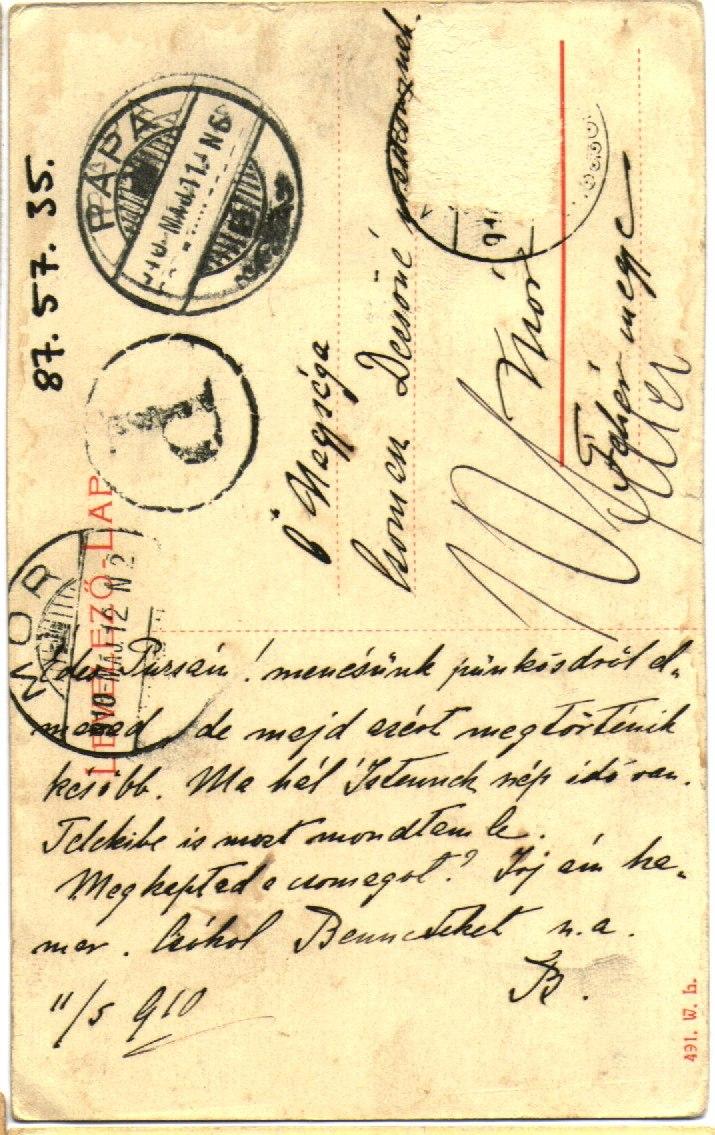 87.57.35.
PÁPA
910 MÁJ. 11. N6
P
LEVELEZŐ-LAP
MÓR
910 MÁJ. 12 N2
Ő Nagysága
Csomen Decsőné
Mór
Fehér megye
Édes ! mencsünk pünkösdről el-
marad, de majd azért megtörténik
később. Ma hál' Istennek szép idő van.
Telekibe is most mondtam le.
Megkaptad a csomagot? Írj ám ha-
mar. Csókol Benneteket n.a.
B.
11/5 910
491. W. L.